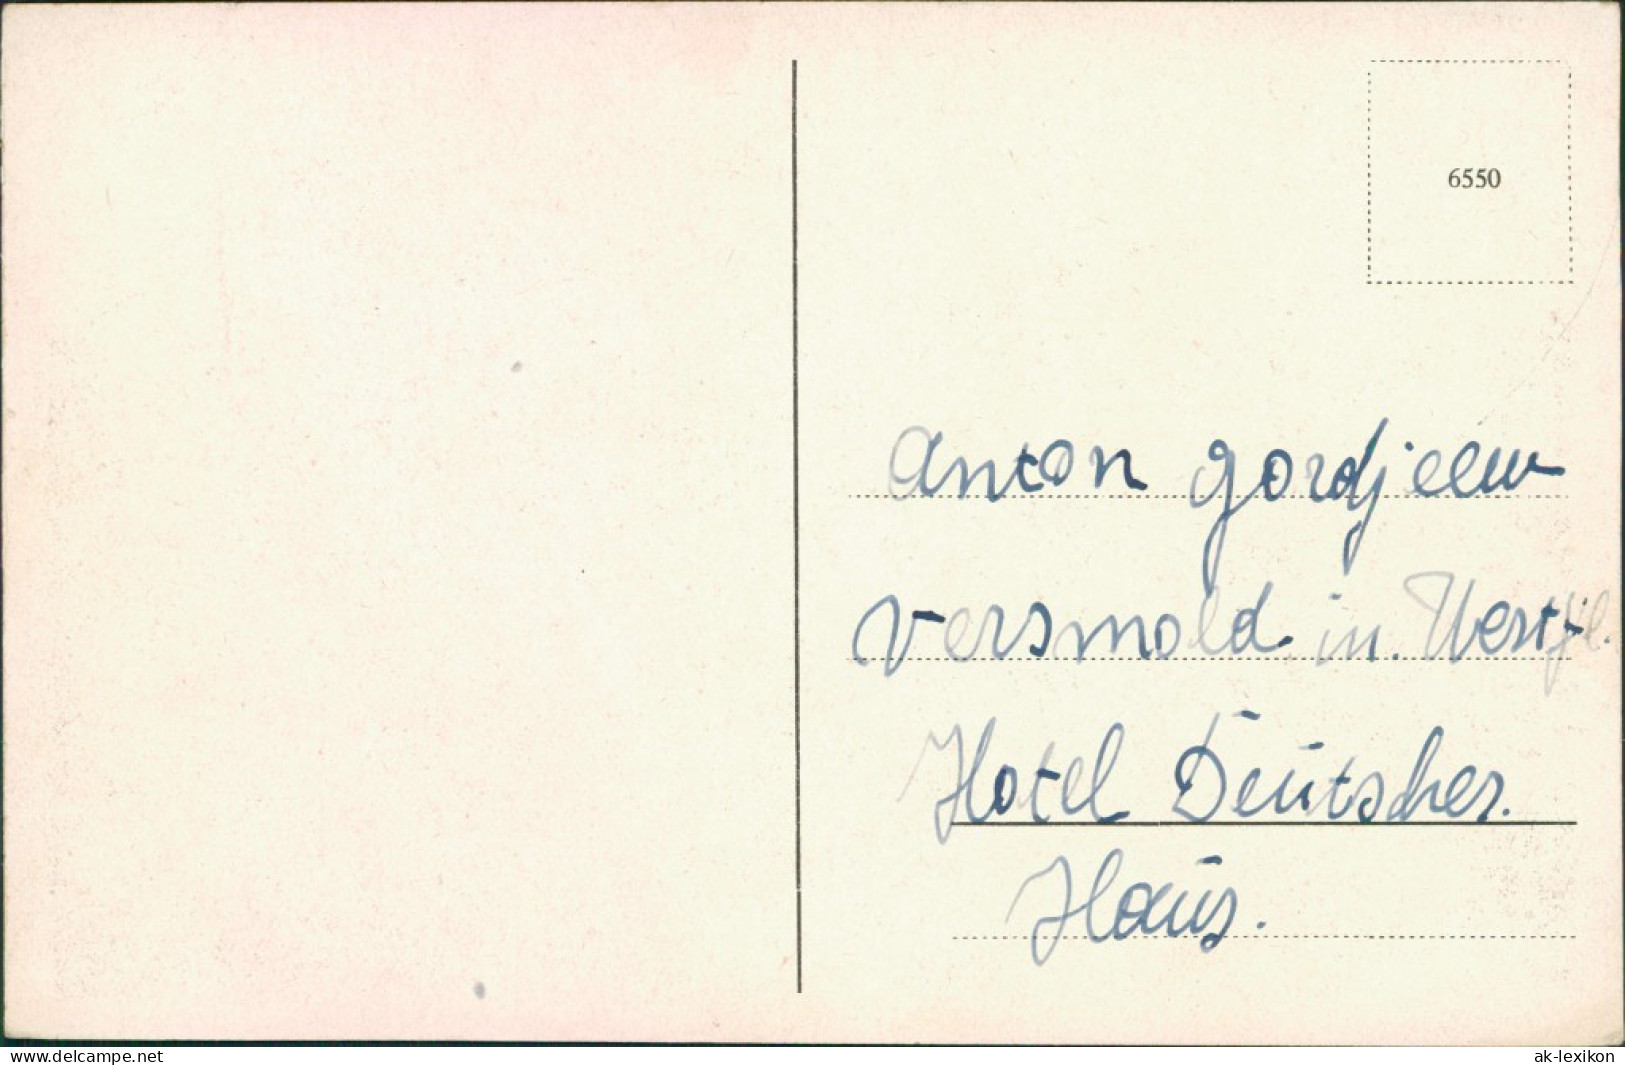 6550
Anton Gordjeew
Versmold in Westfl.
Hotel Deutscher.
Haus.
delcampe.net
ak-lexikon